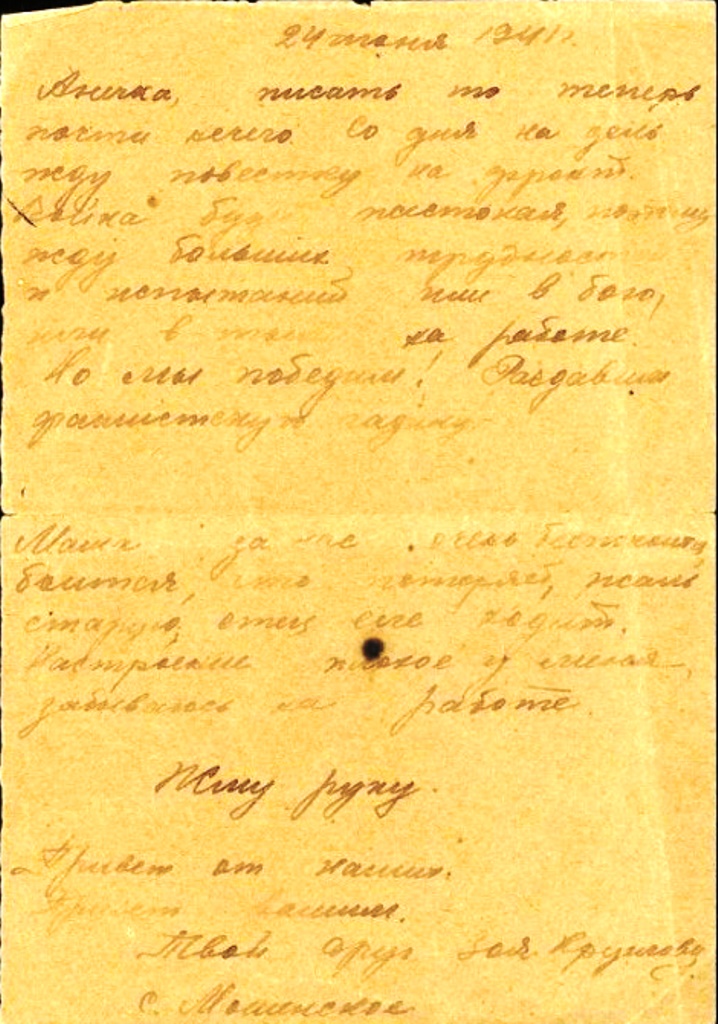 24 июня 1941 г.
Аничка, писать то теперь
почти нечего. Со дня на день
жду повестку на фронт.
Война будет жестокая, потому
жду больших трудностей
и испытаний или в бою,
или в тылу на работе.
Но мы победим! Раздавим
фашистскую гадину.
Мама за нас очень беспокоится,
боится, что потеряет, жаль
старую, отец еле ходит.
Настроение плохое у меня,
забываюсь на работе.
Жму руку.
Привет от наших.
Привет вашим.
Твой друг Зоя Круглова
с. Мошенское